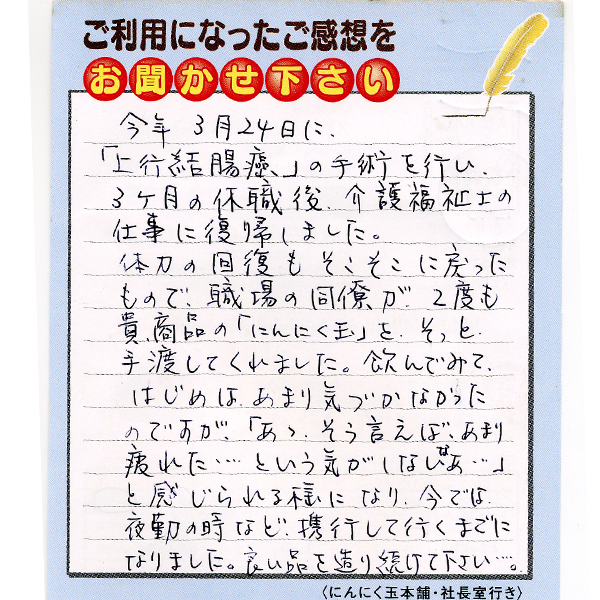 ご利用になったご感想を
お聞かせ下さい
今年 3月24日に、
「上行結腸癌、」の手術を行い、
3ヶ月の休職後、介護福祉士の
仕事に復帰しました。
体力の回復もそこそこに戻った
もので、職場の同僚が、2度も
貴商品の「にんにく玉」を、そっと、
手渡してくれました。飲んでみて、
はじめは、あまり気づかなかった
のですが、「あゝ、そう言えば、あまり
疲れた…という気がしないなあ…」
と感じられる様になり、今では、
夜勤の時など、携行して行くまでに
なりました。良い品を造り続けて下さい…。
〈にんにく玉本舗・社長室行き〉